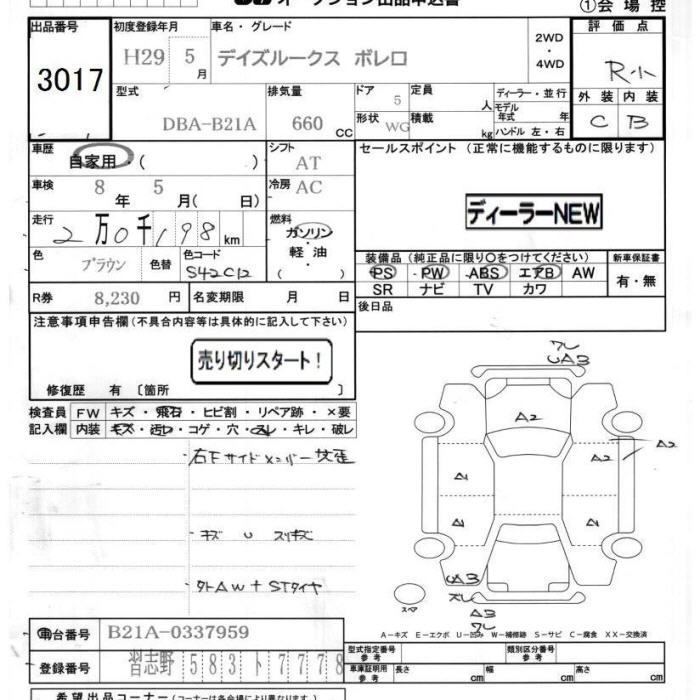 オークション出品申込書
①会場控
出品番号 初度登録年月 車名・グレード 評価点
3017 H29 5月 デイズルークス ボレロ 2WD・4WD R小
型式 排気量 ドア 定員 ディーラー・並行 外装 内装
DBA-B21A 660 CC 5 人 モデル年式 年 C B
形状 WG 積載 kg ハンドル 左・右
車歴 シフト セールスポイント (正常に機能するものに限ります)
自家用・( ) AT
車検 冷房
8年 5月( 日) AC ディーラーNEW
走行 燃料
2万0千198km ガソリン・軽油( )
色 色替 色コード 装備品(純正品に限り○をつけてください) 新車保証書
ブラウン S42C12 PS PW ABS エアB AW 有・無
SR ナビ TV カワ
R券 8,230円 名変期限 月 日 後日品
注意事項申告欄(不具合内容等は具体的に記入して下さい)
売り切りスタート!
修復歴 有〔箇所 〕
検査員 FW キズ・飛石・ヒビ割・リペア跡・×要
記入欄 内装 キズ・汚れ・コゲ・穴・スレ・キレ・破レ
・右Fサイドメンバー
・キズ U スリキズ
・タトAW+STタイヤ
ワレ
UA3
A2
A2
A2
A1
A1
UA3
ズレ
A3
ワレ
スペア
A-キズ E-エクボ U-凹み W-補修跡 S-サビ C-腐食 XX-交換済
車台番号 B21A-0337959
登録番号 習志野 583 ト 7778
型式指定番号 参考 類別区分番号 参考
車庫証明用 参考 長さ cm 幅 cm 高さ cm
希望出品コーナー(コーナーは各会場により異なります)